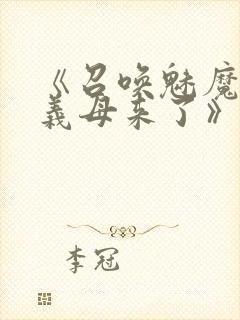 《召唤魅魔
義母来了》
李冠